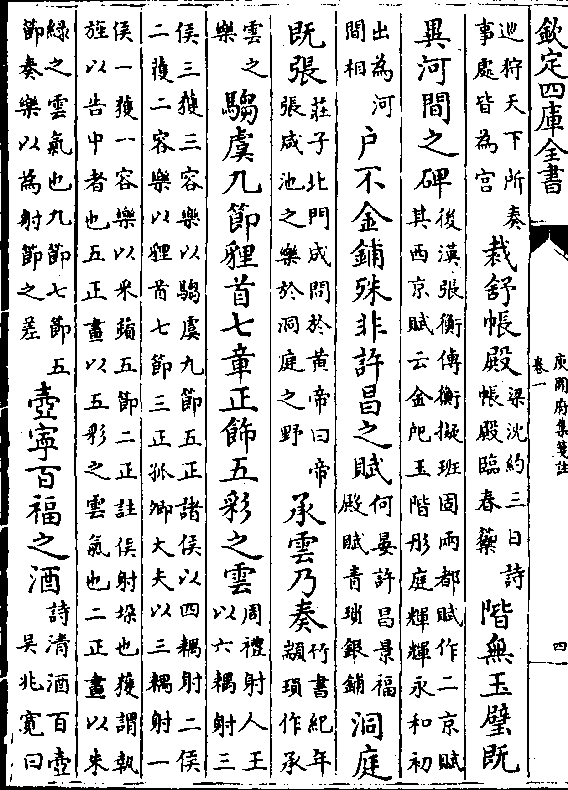 欽定四庫全書
巡狩天下所奏
事處皆為宮
裁舒帳殿
梁沈約三日詩
帳殿臨春籞
階無玉璧既
異河間之碑
後漢張衡傳衡擬班固兩都賦作二京賦
其西京賦云金戺玉階彤庭輝輝永和初
出為河
間相
戶不金鋪殊非許昌之賦
何晏許昌景福
殿賦青瑣銀鋪
洞庭
既張
莊子北門成問於黄帝曰帝
張咸池之樂於洞庭之野
承雲乃奏
竹書紀年
顓頊作承
雲之
樂
騶虞九節貍首七章正飾五彩之雲
周禮射人王
以六耦射三
侯三獲三容樂以騶虞九節五正諸侯以四耦射二侯
二獲二容樂以貍首七節三正孤卿大夫以三耦射一
侯一獲一容樂以采蘋五節二正註侯射垜也獲謂執
旌以告中者也五正畫以五彩之雲氣也二正畫以朱
緑之雲氣也九節七節五
節奏樂以為射節之差
壺寧百福之酒
詩清酒百壺
吳兆寛曰
庾開府集箋註
卷一
四